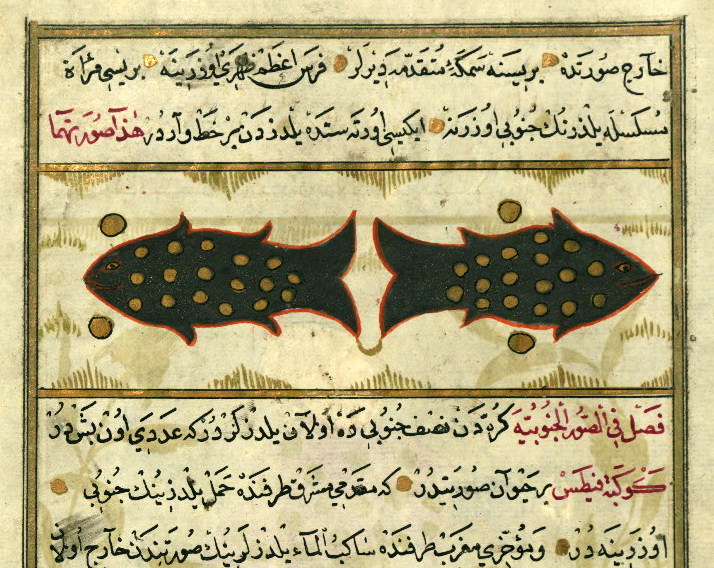 خارج صورتده بريسنه سمكهٔ متقدمه ديرلر فرس اعظم ظهری اوزرينه بريسی مرأة
مسلسله يلدزنك جنوبی اوزرنه ايكيسی اورته سنده يلدزدن بر خط واردر هذا صورتهما
فصل فی الصور الجنوبية كره دن نصف جنوبی ده اولان يلدزلردر كه عددی اون بشدر
كوكبة قيطس بر حيوان صورتيدر كه مقدمی مشرق طرفنده حمل يلدزينك جنوبی
اوزرينه در و مؤخری مغرب طرفنده ساكب الماء يلدزلرينك صورتيندن خارج اولان